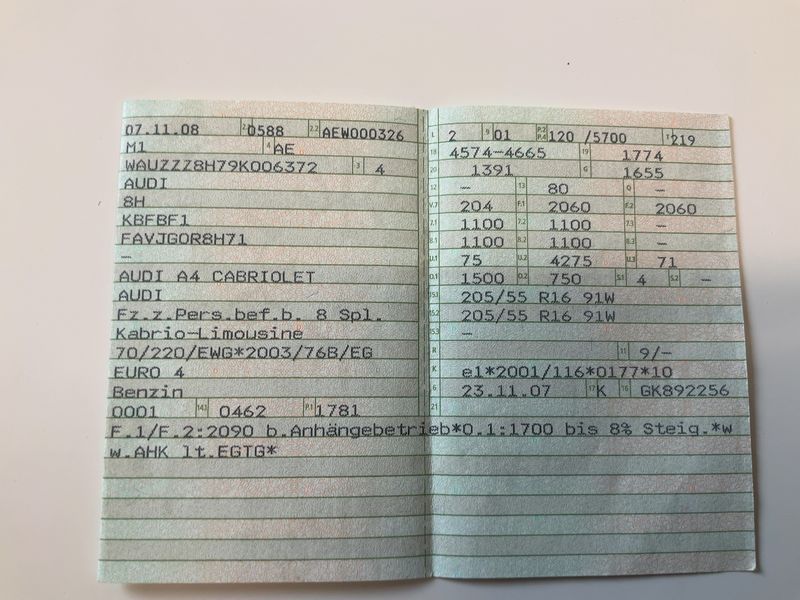 07.11.08 0588 2.2 AEW000326
M1 4 AE
WAUZZZ8H79K006372 3 4
AUDI
8H
KBFBF1
FAVJGOR8H71
–
AUDI A4 CABRIOLET
AUDI
Fz.z.Pers.bef.b. 8 Spl.
Kabrio-Limousine
70/220/EWG*2003/76B/EG
EURO 4
Benzin
0001 14.1 0462 P.1 1781
L 2 9 01 P.2 P.4 120 /5700 T 219
18 4574-4665 19 1774
20 1391 G 1655
12 – 13 80 Q –
V.7 204 F.1 2060 F.2 2060
7.1 1100 7.2 1100 7.3 –
8.1 1100 8.2 1100 8.3 –
U.1 75 U.2 4275 U.3 71
O.1 1500 O.2 750 S.1 4 S.2 –
15.1 205/55 R16 91W
15.2 205/55 R16 91W
15.3 –
R 11 9/–
K e1*2001/116*0177*10
6 23.11.07 17 K 16 GK892256
21
F.1/F.2:2090 b.Anhängebetrieb*O.1:1700 bis 8% Steig.*w
w.AHK lt.EGTG*